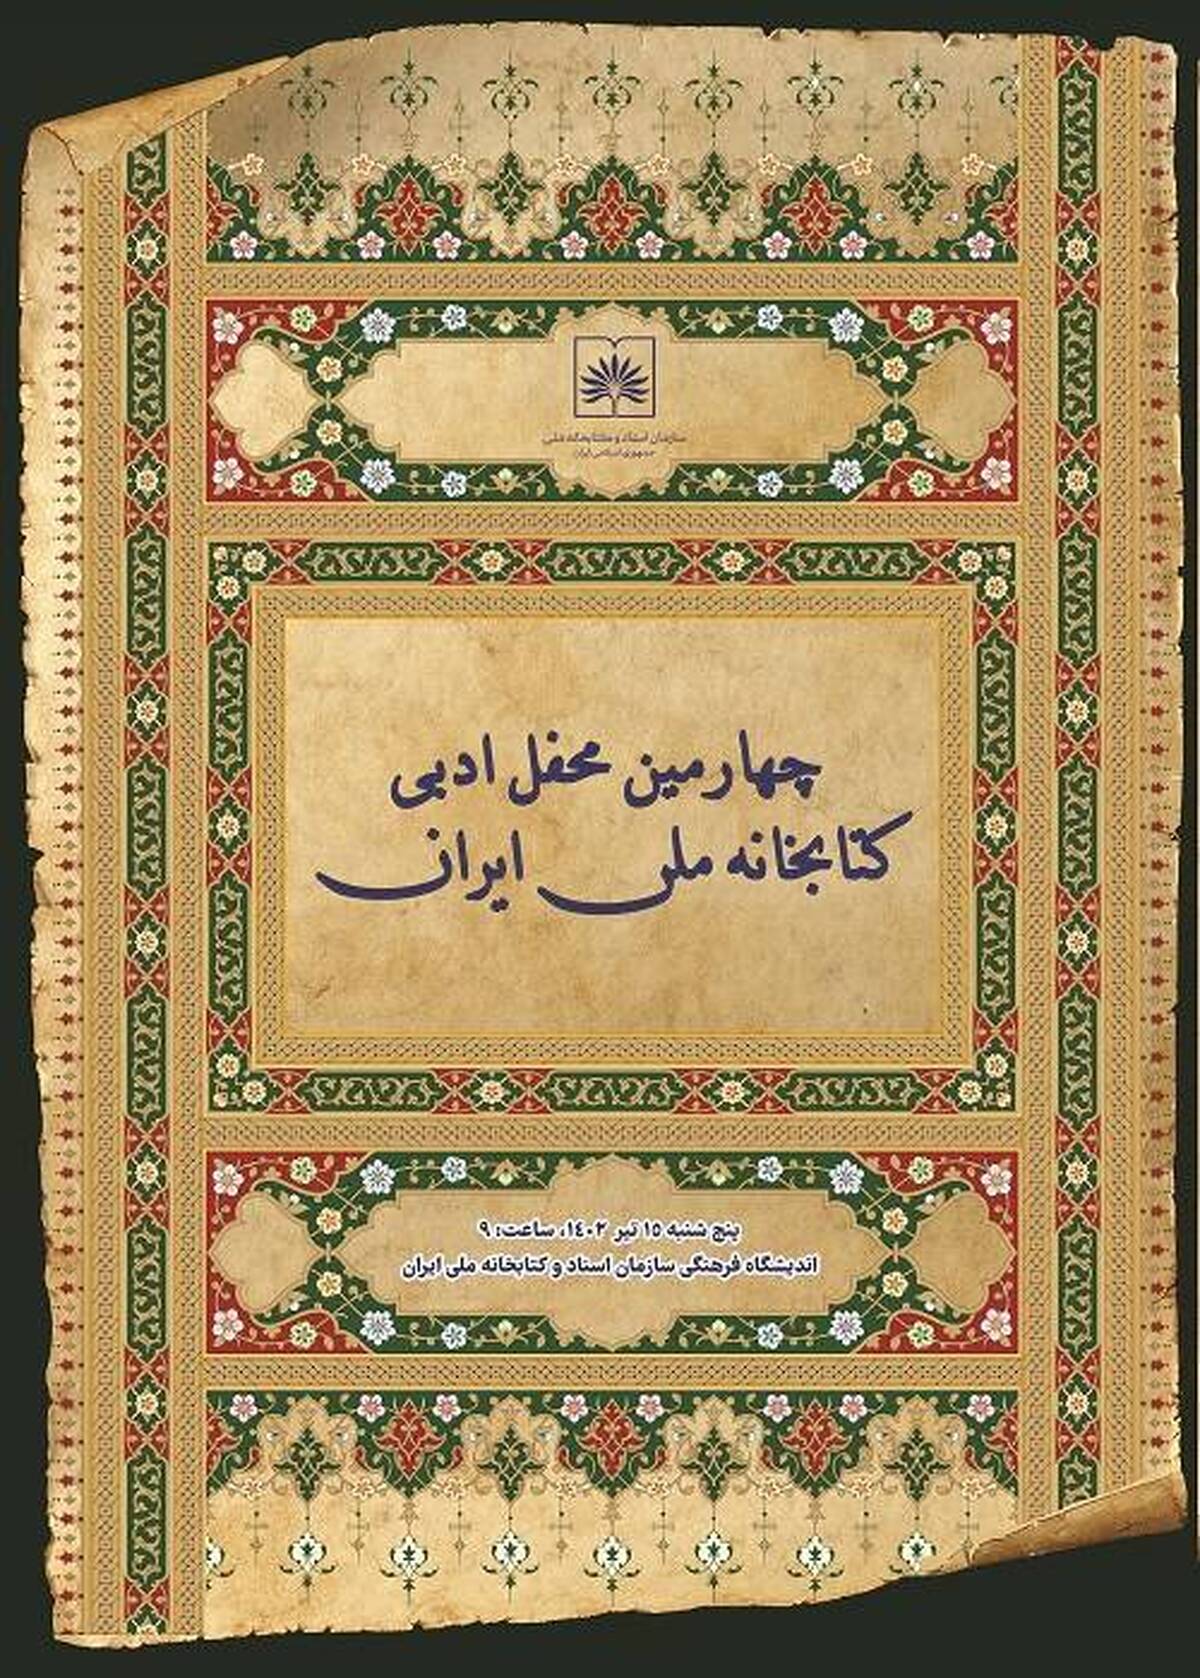 سازمان اسناد و کتابخانه ملی
جمهوری اسلامی ایران
چهارمین محفل ادبی
کتابخانه ملی ایران
پنج شنبه ۱۵ تیر ۱۴۰۲، ساعت: ۹
اندیشگاه فرهنگی سازمان اسناد و کتابخانه ملی ایران